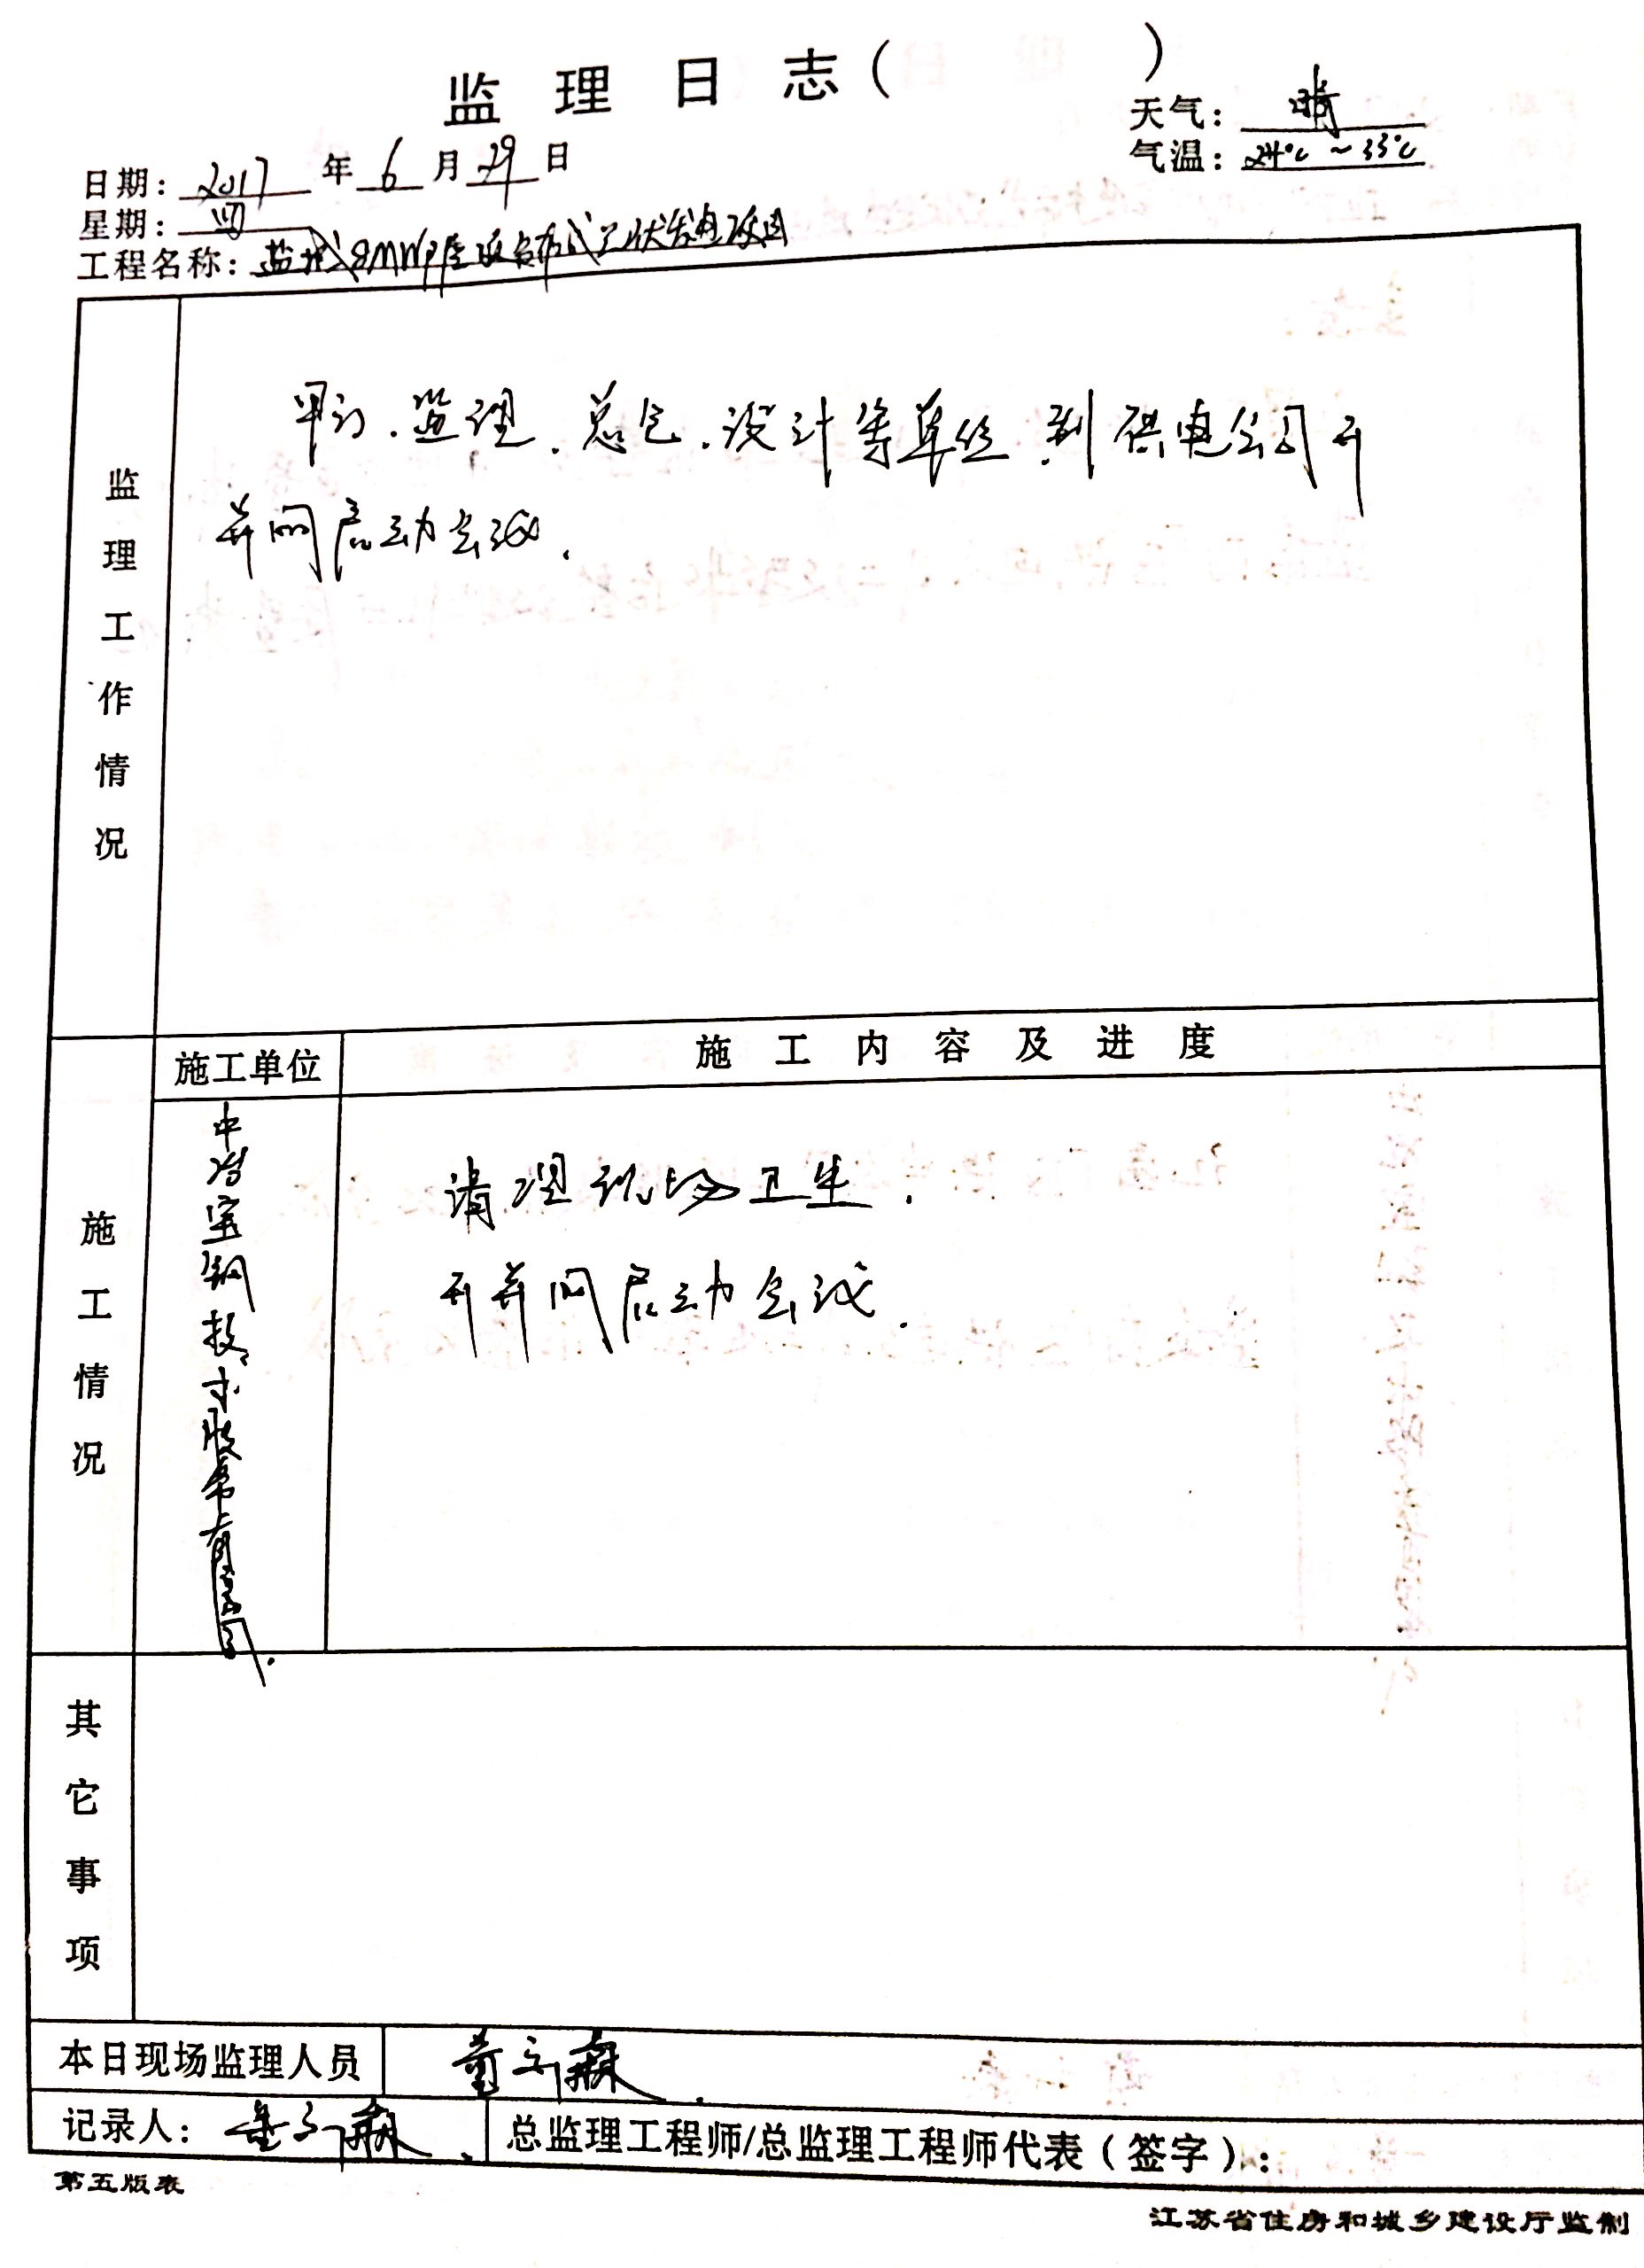 监理日志（　　　）
天气：晴
气温：24℃～33℃
日期：2017年6月29日
星期：四
工程名称：盐城8MWP屋顶分布式光伏发电项目
监理工作情况
甲方、监理、总包、设计等单位到供电公司开
并网启动会议.
施工情况
施工单位
施工内容及进度
中冶宝钢技术服务有限公司.
清理现场卫生.
开并网启动会议.
其它事项
本日现场监理人员
记录人：
总监理工程师/总监理工程师代表（签字）：
第五版表
江苏省住房和城乡建设厅监制